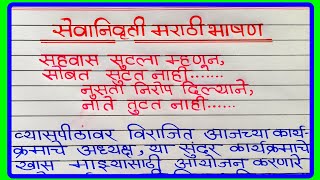 सेवानिवृती मराठी भाषण
सहवास सुटला म्हणून,
सोबत सुटत नाही.......
नुसता निरोप दिल्याने,
नाते तुटत नाही......
व्यासपीठावर विराजित आजच्या कार्य-
क्रमाचे अध्यक्ष, या सुंदर कार्यक्रमाचे
खास माझ्यासाठी आयोजन करणारे